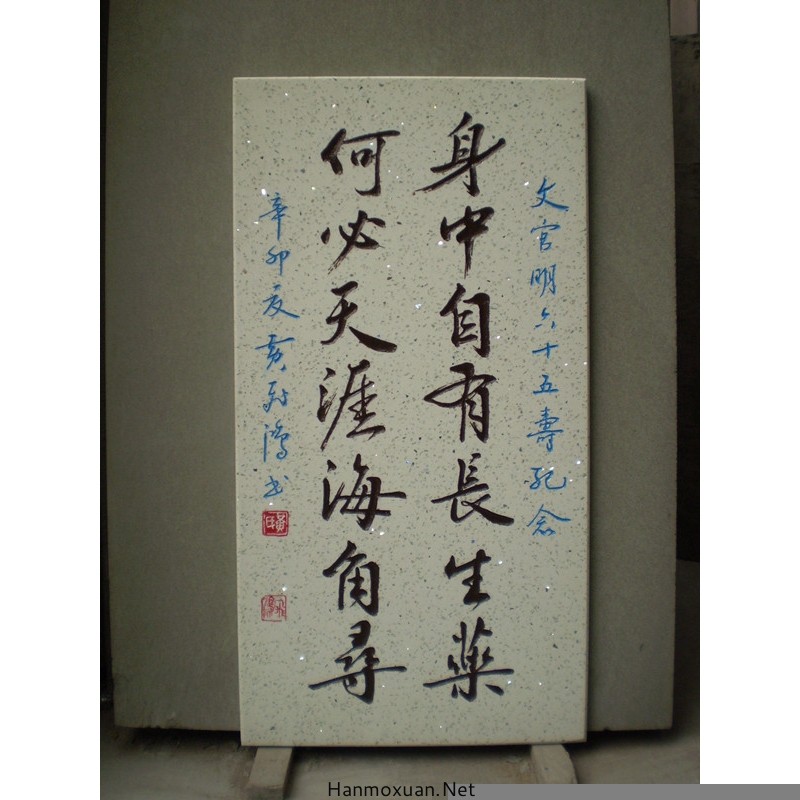 文官明六十五壽紀念
身中自有長生藥
何必天涯海角尋
辛卯夏黄飛鴻书
Hanmoxuan.Net